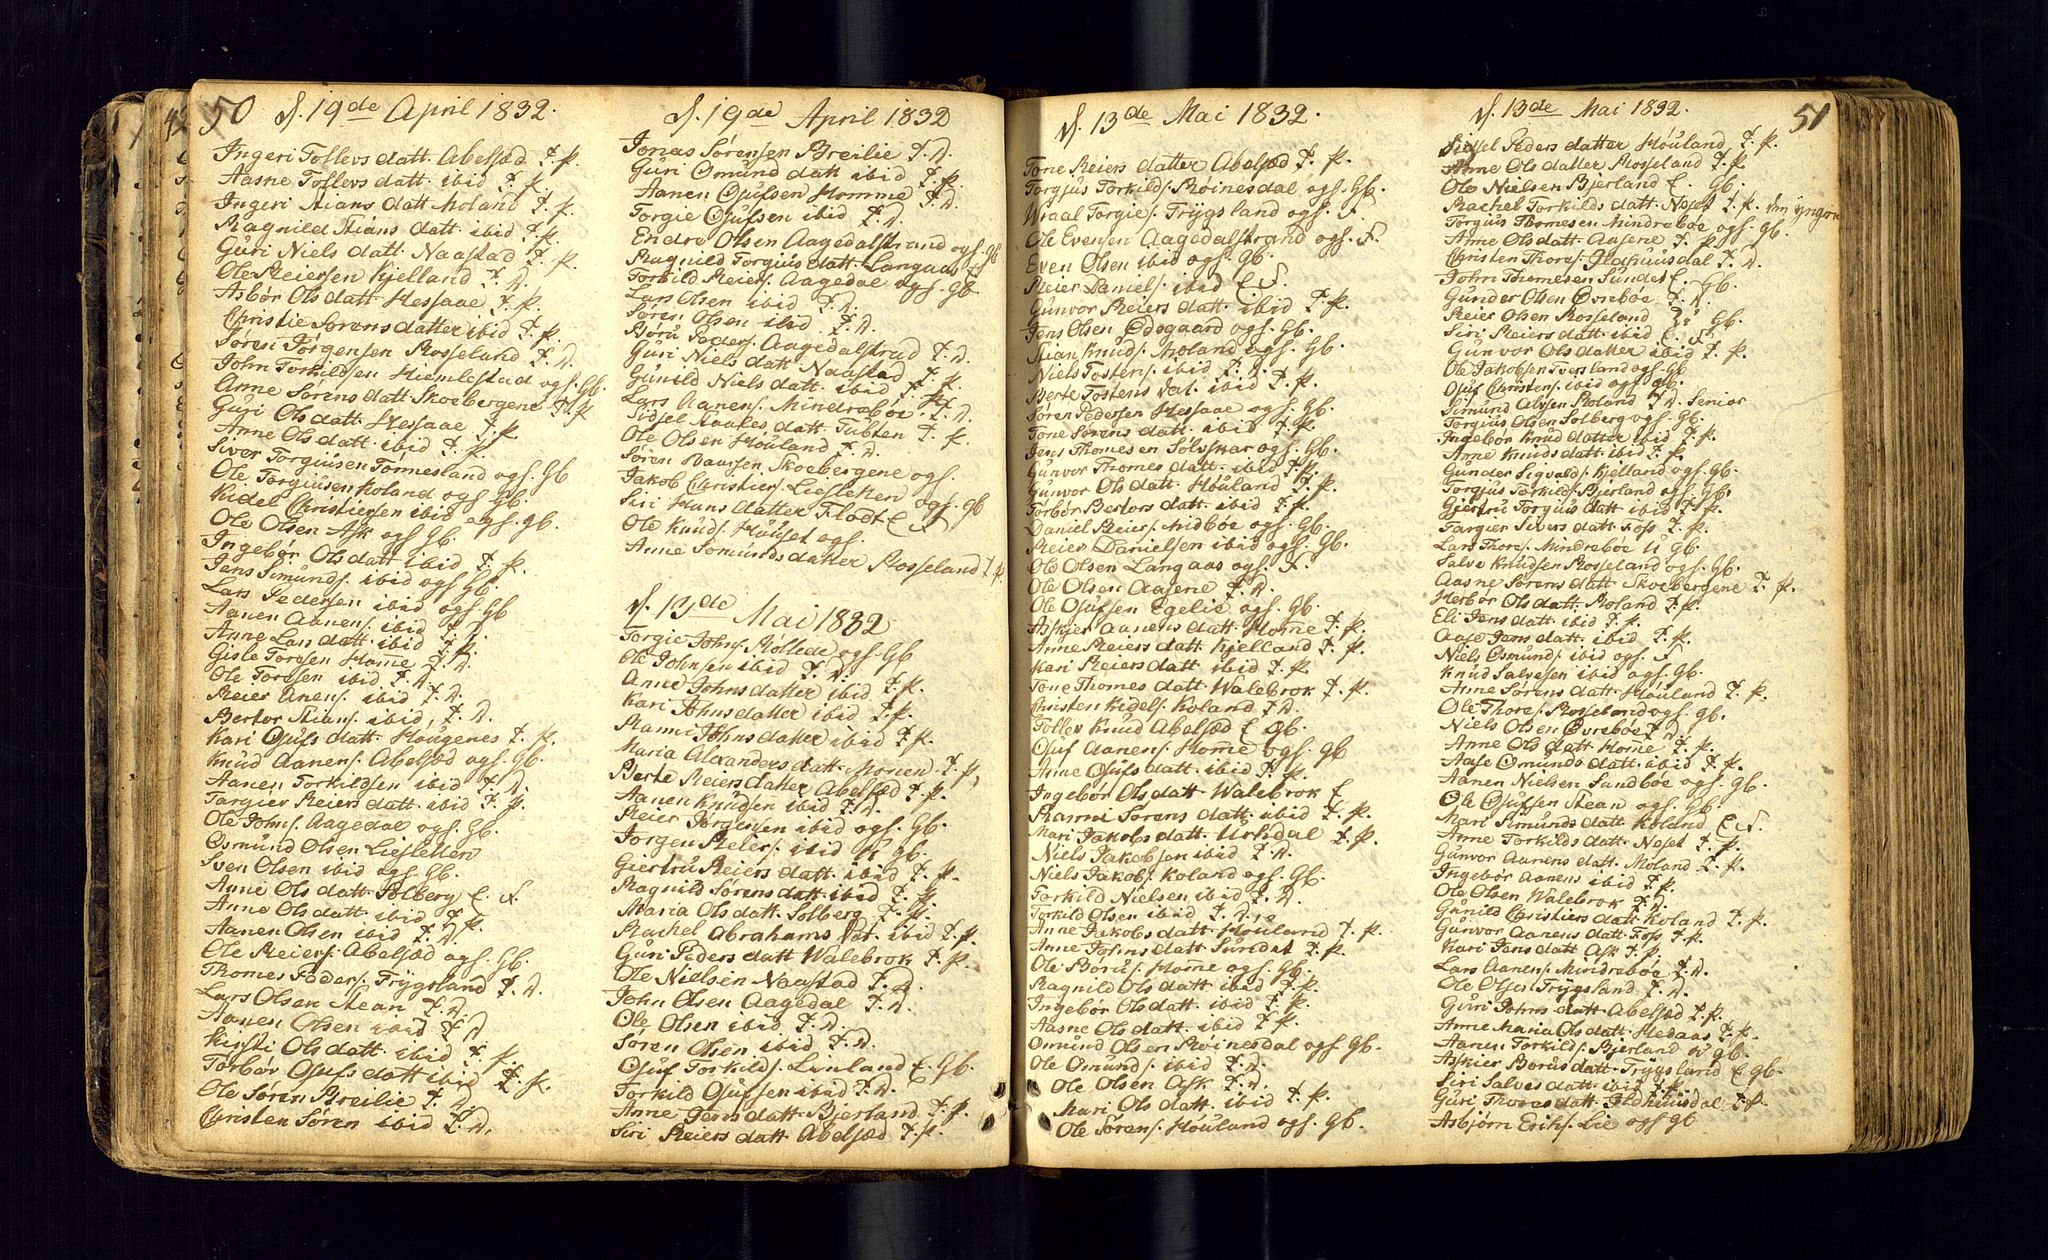 50 d. 19de April 1832.
Ingeri Tollevs datt. Abelsæd T. P.
Aasne Tollevs datt. ibid T. P.
Ingeri Stians datt. Moland T. P.
Ragnild Stians datt. ibid T. P.
Guri Niels datt. Naastad T. P.
Ole Reiersen Kjelland T. D.
Asbør Ols datt. Hessaae T. P.
Christie Sørens datter ibid T. P.
Søren Jørgensen Rosseland T. D.
John Torkildsen Hiemlestad ogf. Gb.
Anne Sørens datt. Skoebergene T. P
Guri Ols datt. Hessaae T. P.
Anne Ols datt. ibid T. P.
Siver Torgiusen Tønnesland ogf. Gb
Ole Torgiusen Roland ogf. Gb.
Kidel Christiersen ibid ogf. Gb.
Ole Olsen Ask ogf. Gb.
Ingebør Ols datt. ibid T. P.
Jens Simunds. ibid ogf. Gb.
Lars Pedersen ibid ogf. Gb
Aanen Aanens. ibid T. D.
Anne Lars datt. ibid T. P.
Gisle Toresen Home T. D.
Ole Toresen ibid T. D.
Reier Anens. ibid T. D.
Bertor Stians. ibid, T. D.
Kari Osufs datt. Hougenes T. P.
Knud Aanens. Abelsæd ogf. Gb.
Aanen Torkildsen ibid T. D.
Targier Reiers datt. ibid T. P.
Ole Johns. Aagedal ogf. Gb.
Osmund Olsen Liesletten
Sven Olsen ibid ogf. Gb.
Anne Ols datt. Solberg E. F.
Anne Ols datt. ibid T. P.
Aanen Olsen ibid T. D.
Ole Reiers. Abelsæd ogf. Gb.
Thomes Peders. Trygsland T. D.
Lars Olsen Stean T. D.
Aanen Olsen ibid T. D
Kirsti Ols datt. ibid T. P.
Torbør Osufs datt. ibid T. P.
Ole Søren Breilie T. D.
Christen Søren ibid T. D.
d. 19de April 1832
Jonas Sørensen Breilie T. D.
Guri Omund datt ibid T. P.
Aanen Osufsen Homme T. D.
Torgie Osufsen ibid T. D.
Endre Olsen Aagedalstrand ogf. Gb
Ragnild Torgius datt. Langaas E F
Torkild Reiers. Aagedal ogf. Gb.
Lars Olsen ibid T. D.
Søren Olsen ibid T. D.
Børu Peders. Aagedalstrad T. D.
Guri Niels datt. Naastad T. P.
Gunild Niels datt. ibid T. P.
Lars Aanens. Mindreboe T. D.
Sidsel Aaules datt. Tubten T. P.
Ole Olsen Houland T. D.
Søren Baarsen Skoebergene ogf.
Jakob Christiers. Liesletten ogf. Gb
Siri Hans datter Flodt E. F
Ole Knuds. Houset ogf.
Anne Somunds datter Rosseland T. P.
d. 13de Mai 1832
Torgie Johns. Røllede ogf. Gb
Ole Johnsen ibid T. D.
Anne Johns datter ibid T. P.
Kari Johns datter ibid T. P.
Ranni Johns datter ibid T. P.
Maria Alexanders datt. Monen T. P.
Berte Reiers datter Abelsæd T. P.
Aanen Knudsen ibid T. D.
Reier Jørgensen ibid ogf. Gb.
Jørgen Reiers. ibid U Gb.
Giertru Reiers datt. ibid T. P.
Ragnild Sørens datt. ibid T. P.
Maria Ols datt. Solberg T. P.
Rachel Abrahams Dat. ibid T. P.
Guri Peders datt Walebrok T. P.
Ole Nielsen Naastad T. D.
John Olsen Aagedal T. D.
Ole Olsen ibid T. D.
Søren Olsen ibid T. D.
Osuf Torkilds. Lunland E. Gb.
Torkild Osufsen ibid T. D.
Anne Jens datt. Bjerland T. P.
Siri Reiers datt. Abelsæd T. P.
d. 13de Mai 1832.
Tone Reiers datter Abelsæd T. P.
Torgjus Torkilds. Roinesdal ogf. Gb.
Wraal Torgies. Trygsland ogf. F
Ole Evensen Aagedalstrand ogf. F.
Even Olsen ibid ogf. Gb.
Reier Daniels. ibid E F.
Gunvor Reiers datt. ibid T. P.
Jens Olsen Ødegaard ogf. Gb.
Stian Knuds. Moland ogf. Gb.
Niels Tostens. ibid T. D.
Berte Tostens Dat. ibid T. P.
Søren Pedersen Hessaae ogf. Gb.
Tone Sørens datt. ibid T. P.
Jens Thomesen Sølvskar ogf. Gb.
Gunvor Thomes datt. ibid T. P.
Gunvor Ols datt. Houland T. P.
Torbør Bertors datt. ibid T. P.
Daniel Reiers. Midboe ogf. Gb.
Reier Danielsen ibid ogf. Gb.
Ole Olsen Langaas ogf. F.
Ole Olsen Aasene T. D.
Ole Osufsen Egelie ogf. Gb.
Askjer Aanens datt. Home T. P.
Anne Reiers datt. Kjelland T. P.
Kari Reiers datt. ibid T. P.
Tone Thomes datt. Walebrok T. P.
Christen Kidels. Roland T. D.
Tollev Knud Abelsæd E. Gb.
Osuf Aanens. Home ogf. Gb
Anne Osufs datt. ibid T. P.
Ingebør Ols datt. Walebrok E
Ranni Sørens datt. ibid T. P.
Mari Jakobs datt. Urksdal T. P.
Niels Jakobsen ibid T. D.
Niels Jakobs. Roland ogf. Gb.
Torkild Nielsen ibid T. D.
Torkild Olsen ibid T. D.
Anne Jakobs datt. Houland T. P.
Anne Johns datt Sundet T. P.
Ole Børus. Home ogf. Gb.
Ragnild Ols datt ibid T. P.
Ingebør Ols datt. ibid T. P.
Aasne Ols datt. ibid T. P.
Omund Olsen Roinesdal ogf Gb.
Ole Omunds. ibid T. D.
Ole Olsen Ask T. D.
Mari Ols datt. ibid T. P.
Ole Sørens. Houland ogf. Gb.
d. 13de Mai 1832. 51
Sidsel Peders datter Houland, T. P.
Anne Ols datter Rosseland T. P.
Ole Nielsen Bjerland E. Gb.
Rachel Torkilds datt. Neset T. P. den yngre
Torgius Thomesen Mindreboe ogf. Gb.
Anne Ols datt. Aasene T. P.
Christen Thores. Ildhuusdal T. D.
John Thomesen Sundet E. Gb.
Gunder Olsen Øvreboe T. D.
Reier Olsen Rosseland U Gb.
Siri Reiers datt. ibid E. F
Gunvor Ols datter ibid T. P.
Ole Jakobsen Tversland ogf Gb
Osuf Christens. ibid ogf Gb.
Simund Alvsen Roland T. D. Senior
Torgius Olsen Solberg ogf. Gb.
Ingebør Knud datter ibid T. P.
Anne Knuds datt. ibid T. P.
Gunder Sigvalds. Kjelland ogf. Gb.
Torgjus Torkilds. Bjerland ogf. Gb.
Gjertru Torgius datt. ibid T. P.
Targier Sivers datt. Foss T. P.
Lars Thores. Mindreboe U Gb.
Salve Knudsen Rosseland ogf. Gb.
Aasne Sørens datt. Skoebergene T. P.
Herbør Ols datt. Roland T. P.
Eli Jens datt. ibid T. P.
Aase Jens datt. ibid T. P.
Niels Osmunds. ibid ogf. F
Knud Salvesen ibid ogf. Gb.
Anne Sørens datt. Houland T. P.
Ole Thores. Rosseland ogf. Gb.
Niels Olsen Øvreboe T. D.
Anne Ols datt. Home T. P.
Aase Omunds datt. ibid T. P.
Aanen Nielsen Sandboe ogf. Gb.
Ole Osufsen Stean ogf. Gb.
Mari Simunds datt. Roland E F.
Anne Torkilds datt. Neset T. P.
Gunvor Aanens datt. Moland T. P.
Ingebør Aanens ibid T. P.
Ole Olsen Walebrok T. D.
Gunild Christiers datt. Roland T. P.
Gunvor Aanens datt. Foss T. P.
Kari Jens datt Ask T. P.
Lars Aanens. Mindreboe T. D.
Ole Olsen Trygsland T. D.
Guri Johns datt. Abelsæd T. P.
Anne Maria Ols datt. Hedaas T. P.
Aanen Torkilds. Bjerland U Gb.
Askier Børus datt. Trygsland E Gb.
Siri Salves datt. ibid T. P.
Guri Thores datt. Ildhuusdal T. P.
Asbjørn Eriks. Lie ogf Gb